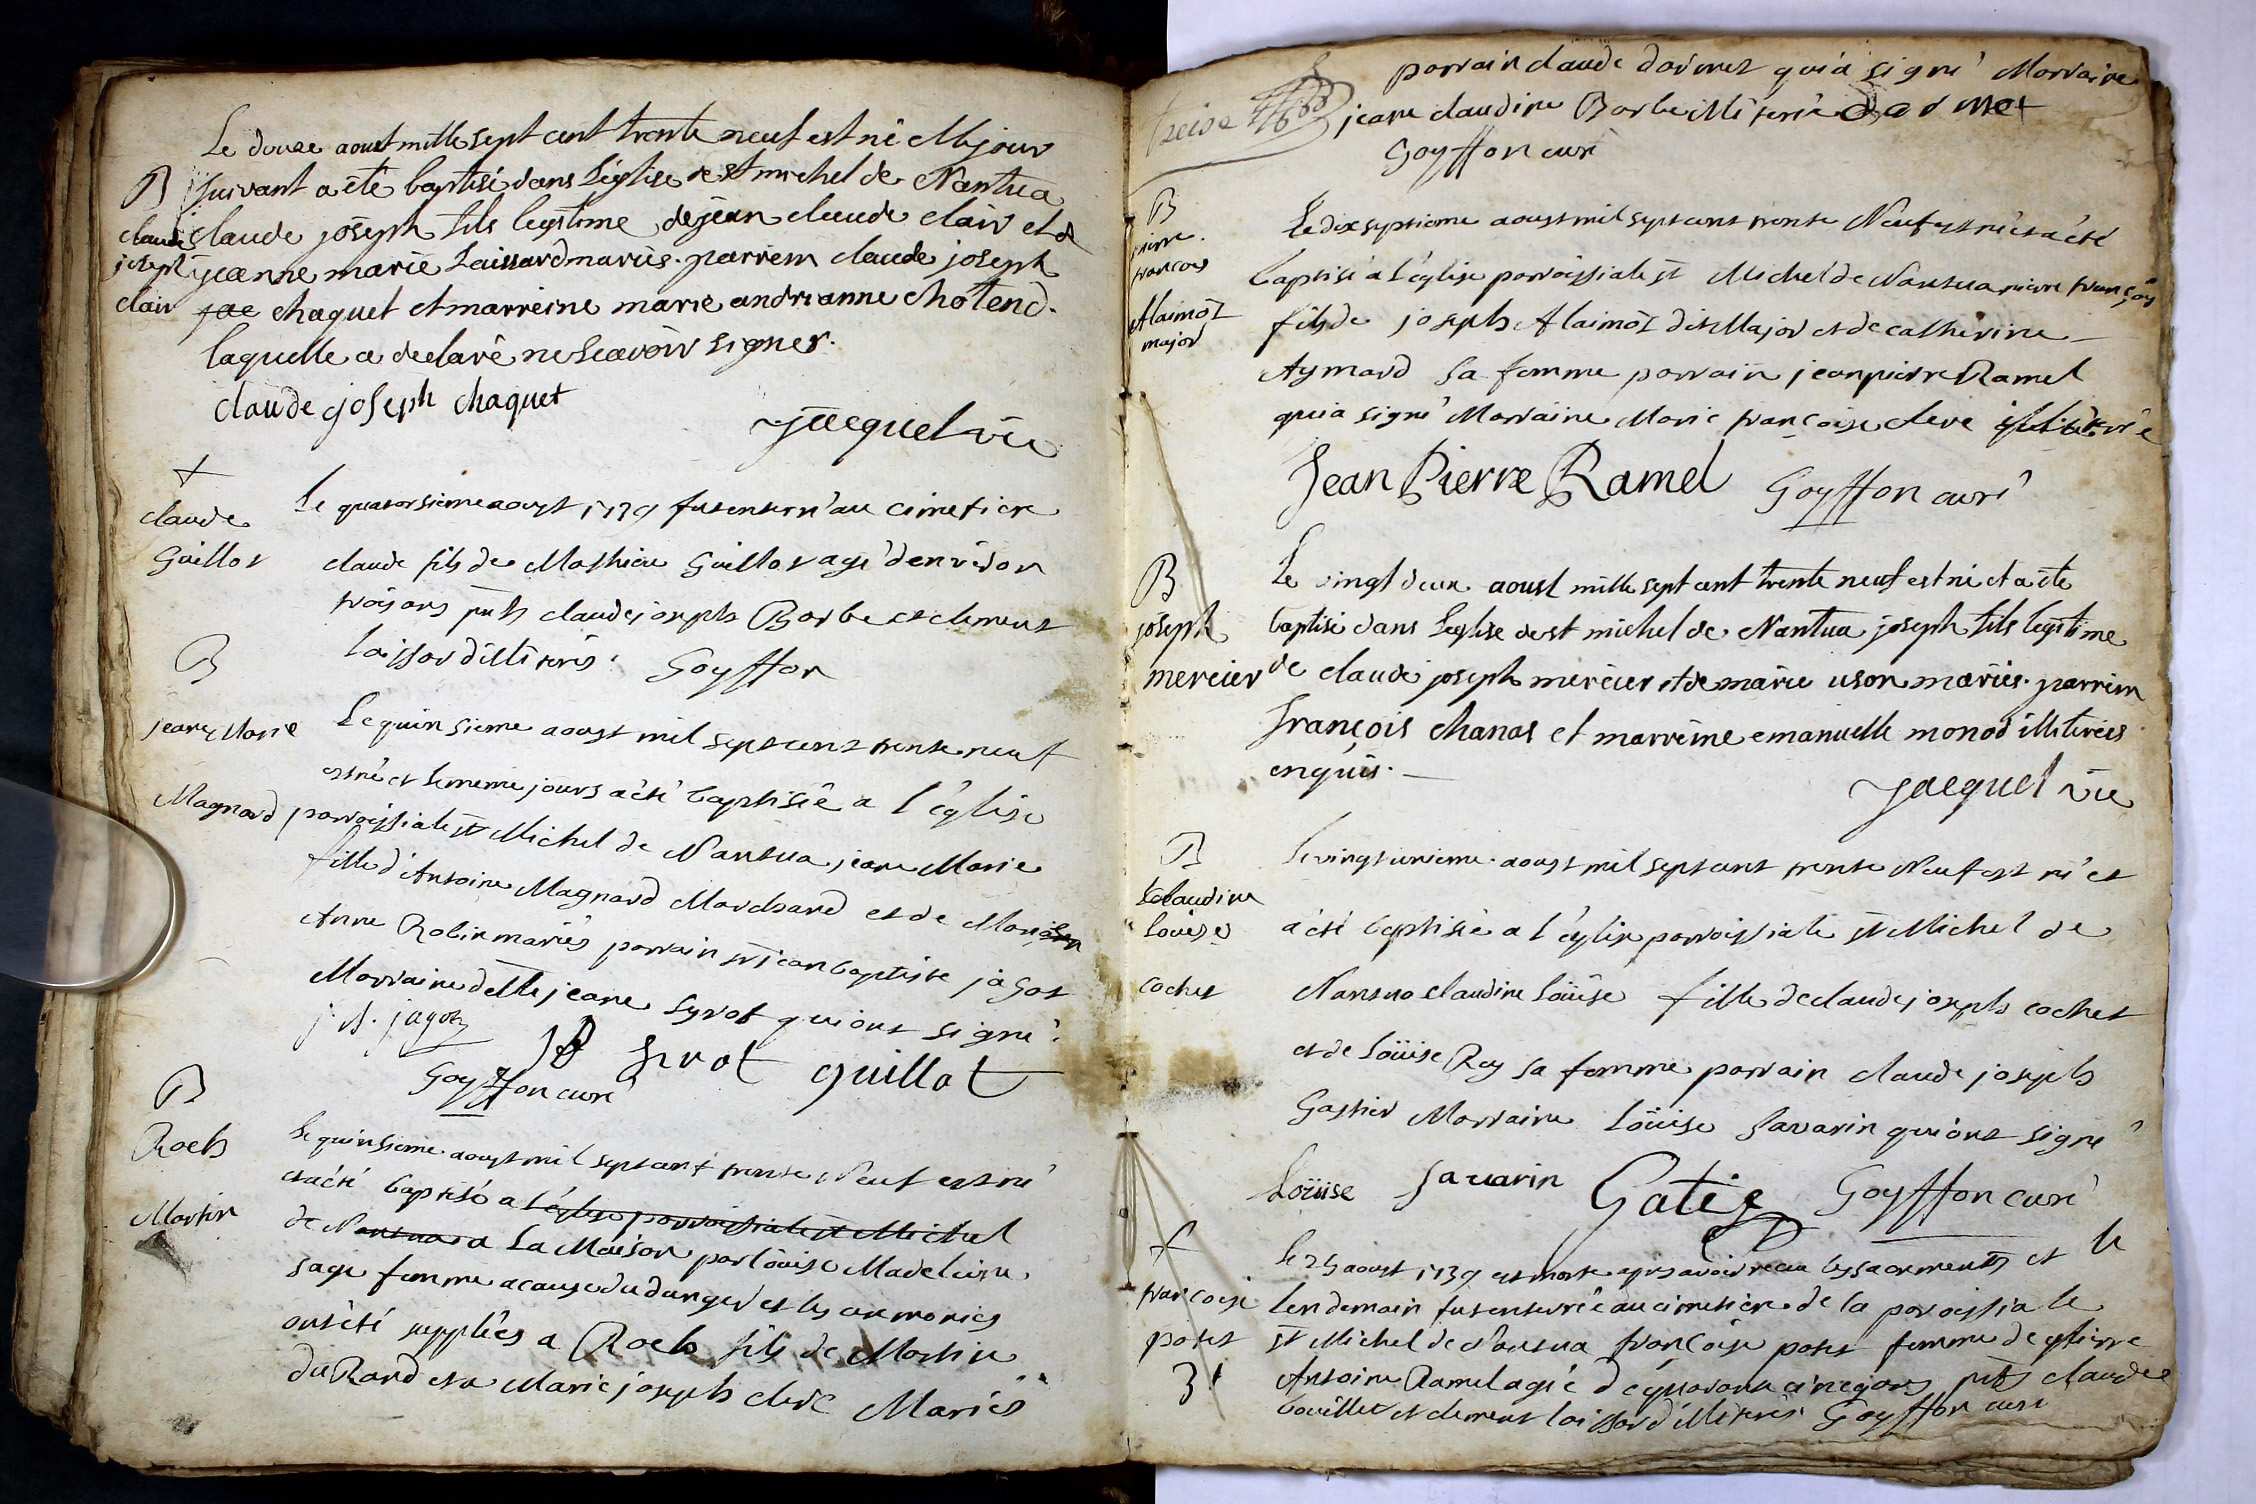 Le douze aoust mille sept cent trente neuf est né et le jour
B
suivant a été baptisé dans L'église de st michel de Nantua
claude
claude joseph fils legitime de jean claude clair et de
joseph
jeanne marie Laissard mariés. parrein claude joseph
clair
jae chaquet et marreine marie andrianne chotend.
laquelle a declaré ne sçavoir signer.
claude joseph chaquet
jacquet vic
+
claude
Guillot
Le quatorsieme aoust 1739 fut enterré au cimetiere
claude fils de Mathieu Guillot agé d'environ
trois ans puts claude joseph Barbe et clement
laissard illiterés. Goyffon
B
jeane Marie
Magnard
Le quinsieme aoust mil sept cent trente neuf
est né et le meme jours a été baptisée a l'église
parroissiale st Michel de Nantua jeane Marie
fille d'Antoine Magnard Marchand et de Marie
Anne Robin mariés parrain sr jean baptiste jagot
Marraine delle jeane Syrot qui ont signé.
j. B. jagot
Syrot guillot
Goyffon curé
B
Roch
Martin
Le quinsieme aoust mil sept cent trente Neuf est né
et a été baptisé a l'église parroissiale st Michel
de Nantua a La Maison par Loüise Madeleine
sage femme a cause du danger et les ceremonies
ont été supplées a Roch fils de Martin
du Rand et a Marie joseph clerc Mariés
treise
parrain claude darmet qui a signé Marraine
jeane claudine Barbe illiterée darmet
Goyffon curé
B
pierre
francois
Alaimot
major
Le dix septieme aoust mil sept cent trente Neuf est né et a été
baptisé a l'église parroissiale st Michel de Nantua pierre françois
fils de joseph Alaimot dit Major et de catherine
Aymard sa femme parrain jean pierre Ramel
qui a signé Marraine Marie françoise clerc illiterée
Jean Pierre Ramel Goyffon curé
B
joseph
mercier
Le vingt deux aoust mille sept cent trente neuf est né et a été
baptisé dans L'eglise de st michel de Nantua joseph fils legitime
de claude joseph mercier et de marie uson mariés. parrein
françois chanas et marreine emanuelle monod illiterées
enquis.
jacquet vic
B
claudine
Loüise
cochet
Le vingt unieme aoust mil sept cent trente Neuf est né et
a été baptisée a l'église parroissiale st Michel de
Nantua claudine Loüise fille de claude joseph cochet
et de Loüise Rey sa femme parrain claude joseph
Gastier Marraine Loüise Savarin qui ont signé
Loüise Savarin Gatie Goyffon curé
+
françoise
potet
3
Le 25 aoust 1739 est morte apres avoir receu les sacrements et le
lendemain fut enterrée au cimetiere de la parroissiale
st Michel de Nantua françoise potet femme de pierre
Antoine Ramel agée de quarante cinq ans puts claude
bouillet et clement laissard illiterés Goyffon curé